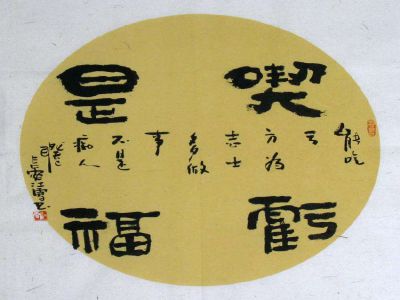 喫虧
是福
能吃
亏
方为
志士
多做
事
不是
痴人